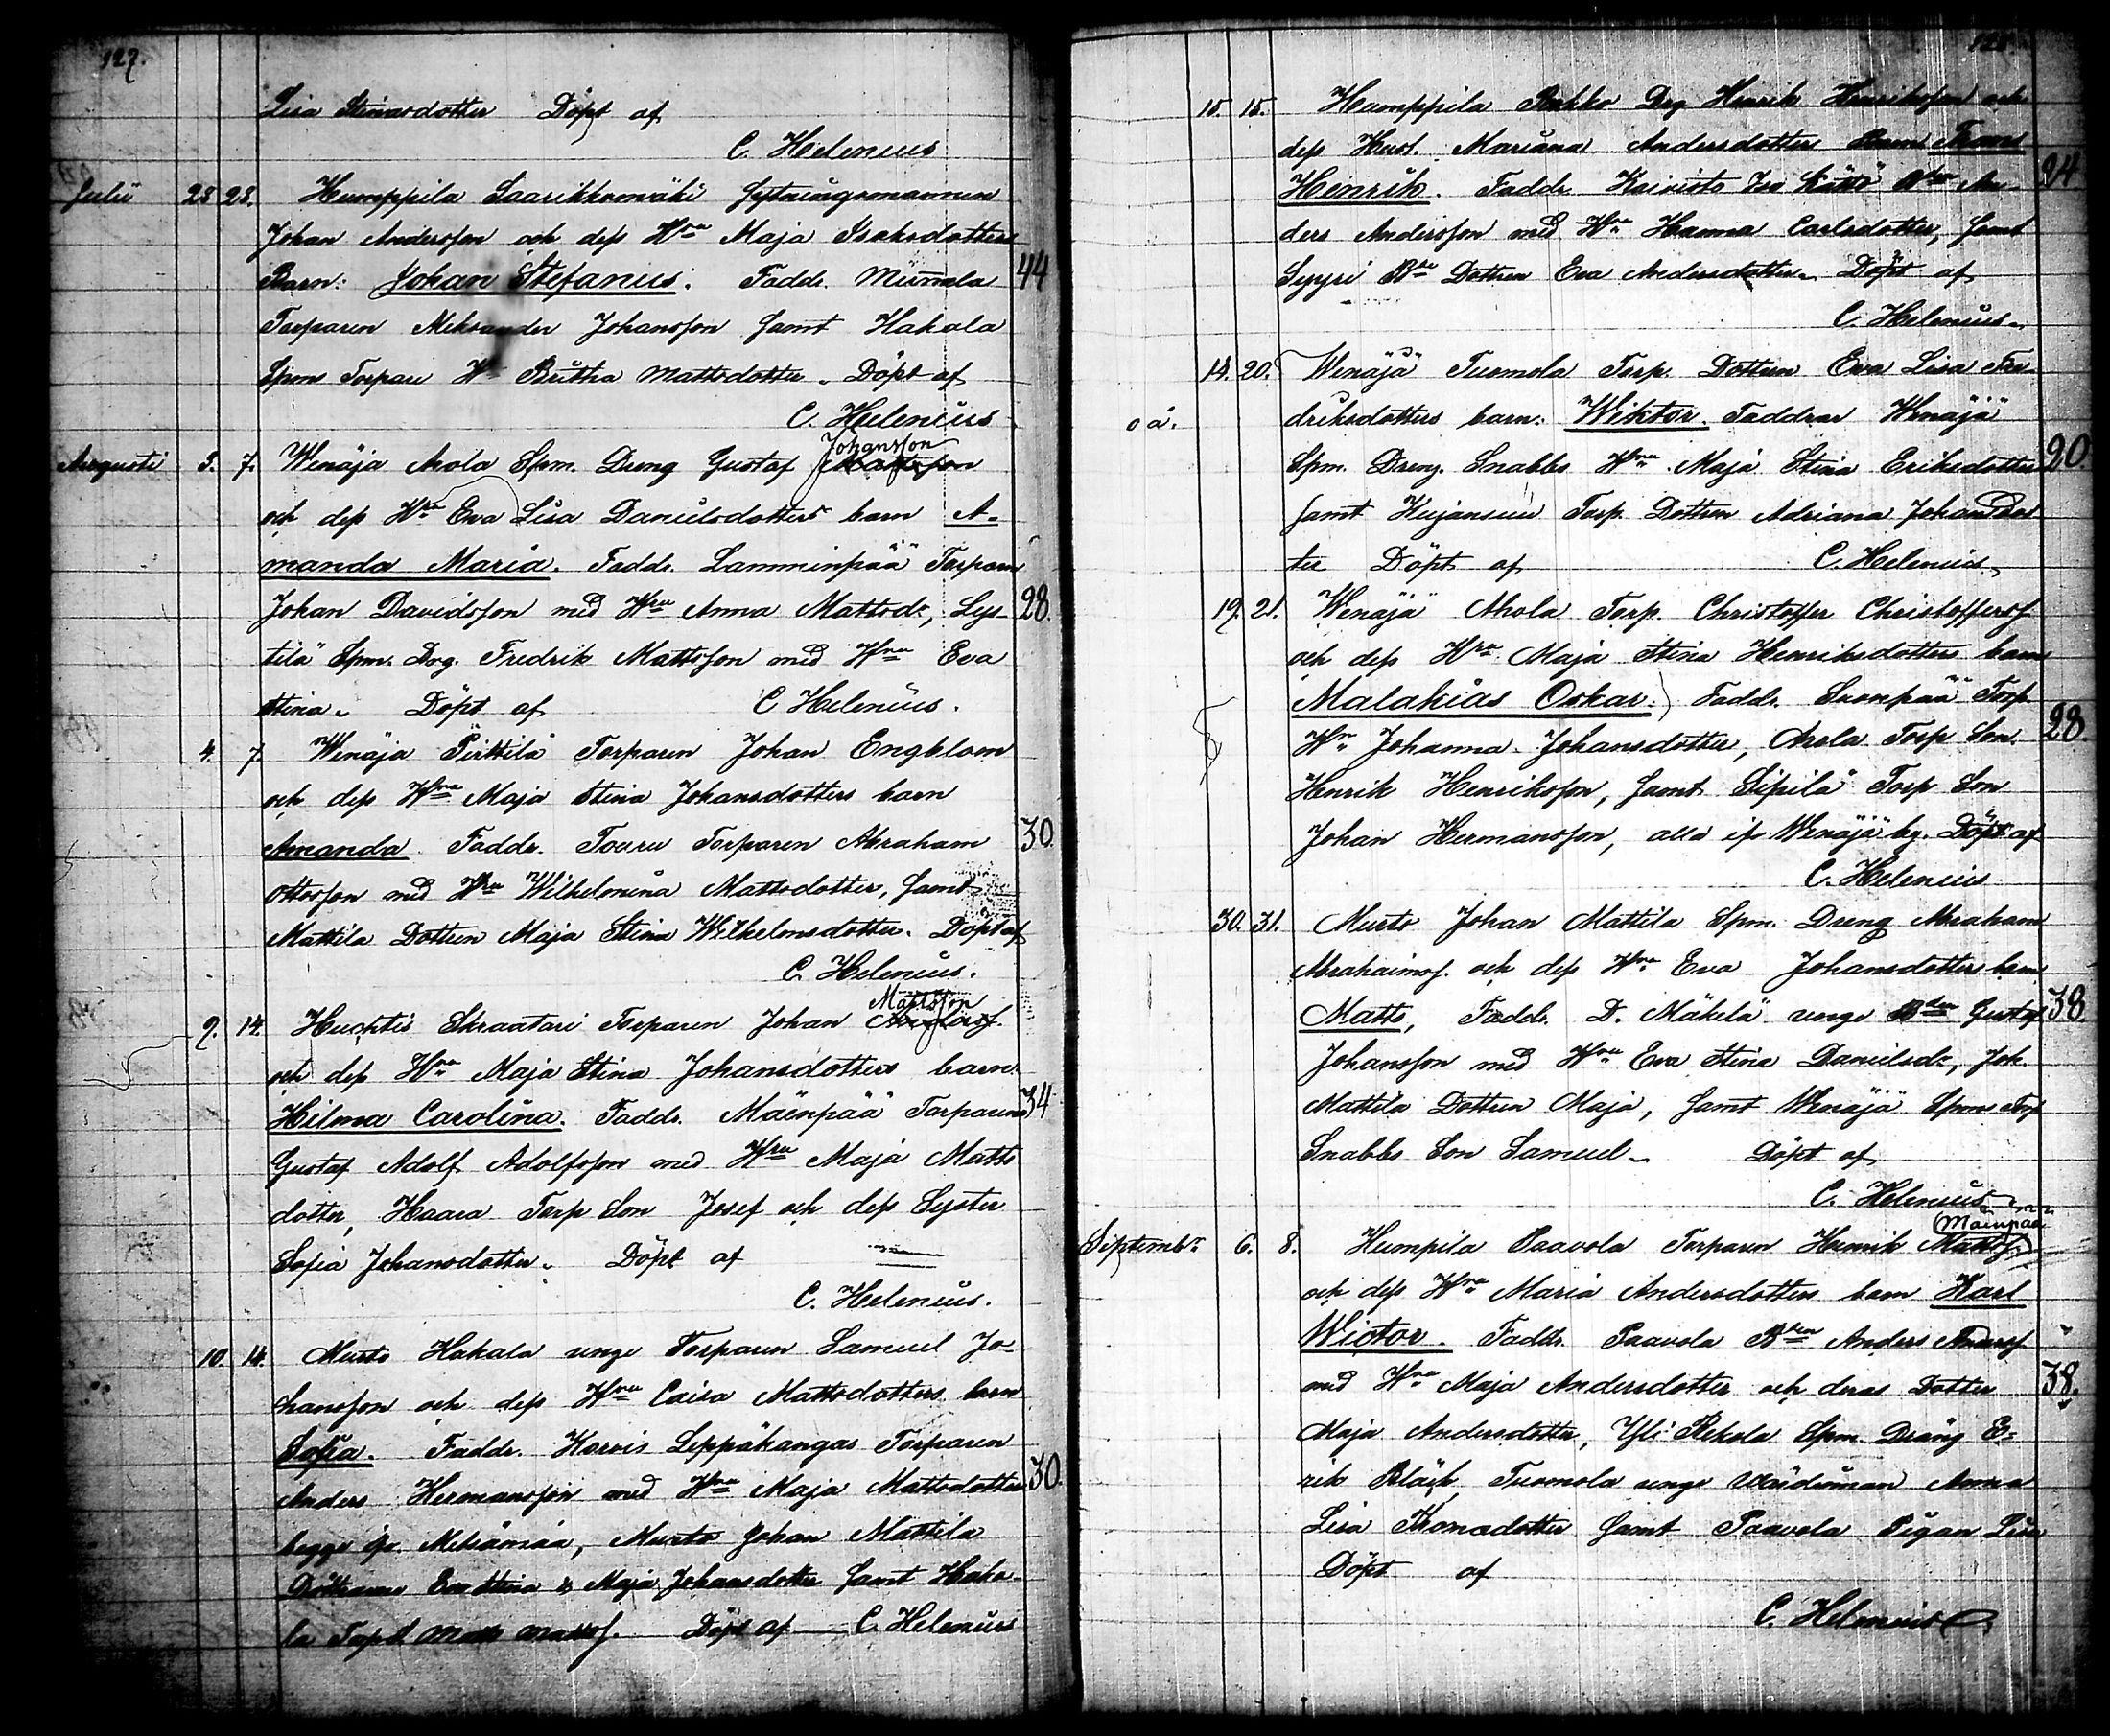 127.
Lisa Stinasdotter Döpt af
C. Helenius
Julii 28 28. Humppila Saarikkomäki Hytningsmannen
Johan Andersson och dess Hru Maja Isaksdotters
Barn: Johan Stefanus. Faddr. Minnala 44
Torparen Aleksander Johansson samt Hakala
Spms Torpare H Britha Mattsdotter. Döpt af
C. Helenius
Johansson
Augusti 3. 7. Wenäjä Ahola Spm. Dreng Gustaf
och dess Hru Eva Lisa Danielsdotters barn A-
manda Maria. Faddr. Lamminpää Torparn
Johan Davidsson med Hru Anna Mattsdr, Lys- 28.
tilä Spm. Drg. Fredrik Mattsson med Hru Eva
Stina. Döpt af C Helenius.
4. 7. Wenäjä Pirttilä Torparen Johan Engblom
och dess Hru Maja Stina Johansdotters barn
Amanda. Faddr. Touru Torparen Abraham 30.
Ottosson med Hru Wilhelmina Mattsdotter, samt
Mattila Dottren Maja Stina Wilhelmsdotter. Döpt af
C. Helenius.
Mattsson
9. 14. Huhtis Skraatari Torparen Johan
och dess Hru Maja Stina Johansdotters barn.
Hilma Carolina. Faddr. Mäenpää Torparen 34
Gustaf Adolf Adolfsson med Hru Maja Matts
dotter, Haara Torp Son Josef och dess Syster
Sofia Johansdotter. Döpt af
C. Helenius.
10. 14. Murto Hakala unge Torparen Samuel Jo-
hansson och dess Hru Caisa Mattsdotters barn
Sofia. Faddr. Korvis Leppäkangas Torparen
Anders Hermansson med Hru Maja Mattsdotter 30.
begge i Metsämaa, Murto Johan Mattila
Döttrarne Eva Stina & Maja Johansdotter samt Haka-
la Torp Matts Mattsf. Döpt af C. Helenius
128.
15. 15. Humppila Rekko Drg Henrik Henriksson och
dess Hust. Mariana Andersdotters Barn Frans
Henrik. Faddr. Koivisto An- 24
ders Andersson med Hru Hanna Carlsdotter, samt
Syyri Bde Dottren Eva Andersdotter. Döpt af
C. Helenius.
14. 20. Wenäjä Tuomola Torp. Dottren Eva Lisa Fre-
o ä. driksdotters barn: Wiktor. Faddrar Wenäjä
Spm. Dreng. Snabbs Hru Maja Stina Eriksdotter 20.
samt Hujansuu Torp. Dottren Adriana Johansdot
ter Döpt af C. Helenius.
19. 21. Wenäjä Ahola Torp. Christoffer Christoffersf
och dess Hru Maja Stina Henriksdotters barn
Malakias Oskar. Faddr. Suonpää Torp
Hru Johanna Johansdotter, Ahola Torp Son. 28.
Henrik Henriksson, samt Sipilä Torp Son
Johan Hermansson, alla ifr Wenäjä by. Döpt af
C. Helenius
30. 31. Murto Johan Mattila Spm. Dreng Abraham
Abrahamsf. och dess Hru Eva Johansdotters barn
Matts, Faddr. D. Mäkelä unge Bden Gustaf 38.
Johansson med Hru Eva Stina Danielsdr, Joh.
Mattila Dottren Maja, samt Wenäjä Spms Torp
Snabbs Son Samuel. Döpt af
C. Helenius
Mäinpää
Septembr 6. 8. Humpila Paavola Torparen Henrik Mattsf.
och dess Hru Maria Andersdotters barn Karl
Wictor. Faddr. Paavola Bden Anders Andersf
med Hru Maja Andersdotter och deras Dotter 38.
Maja Andersdotter, Yli Rekola Spm. Dräng E-
rik Bläck, Tuomola unge Anna
Lisa Thomasdotter samt Paavola Pigan Lisa
Döpt af
C. Helenius